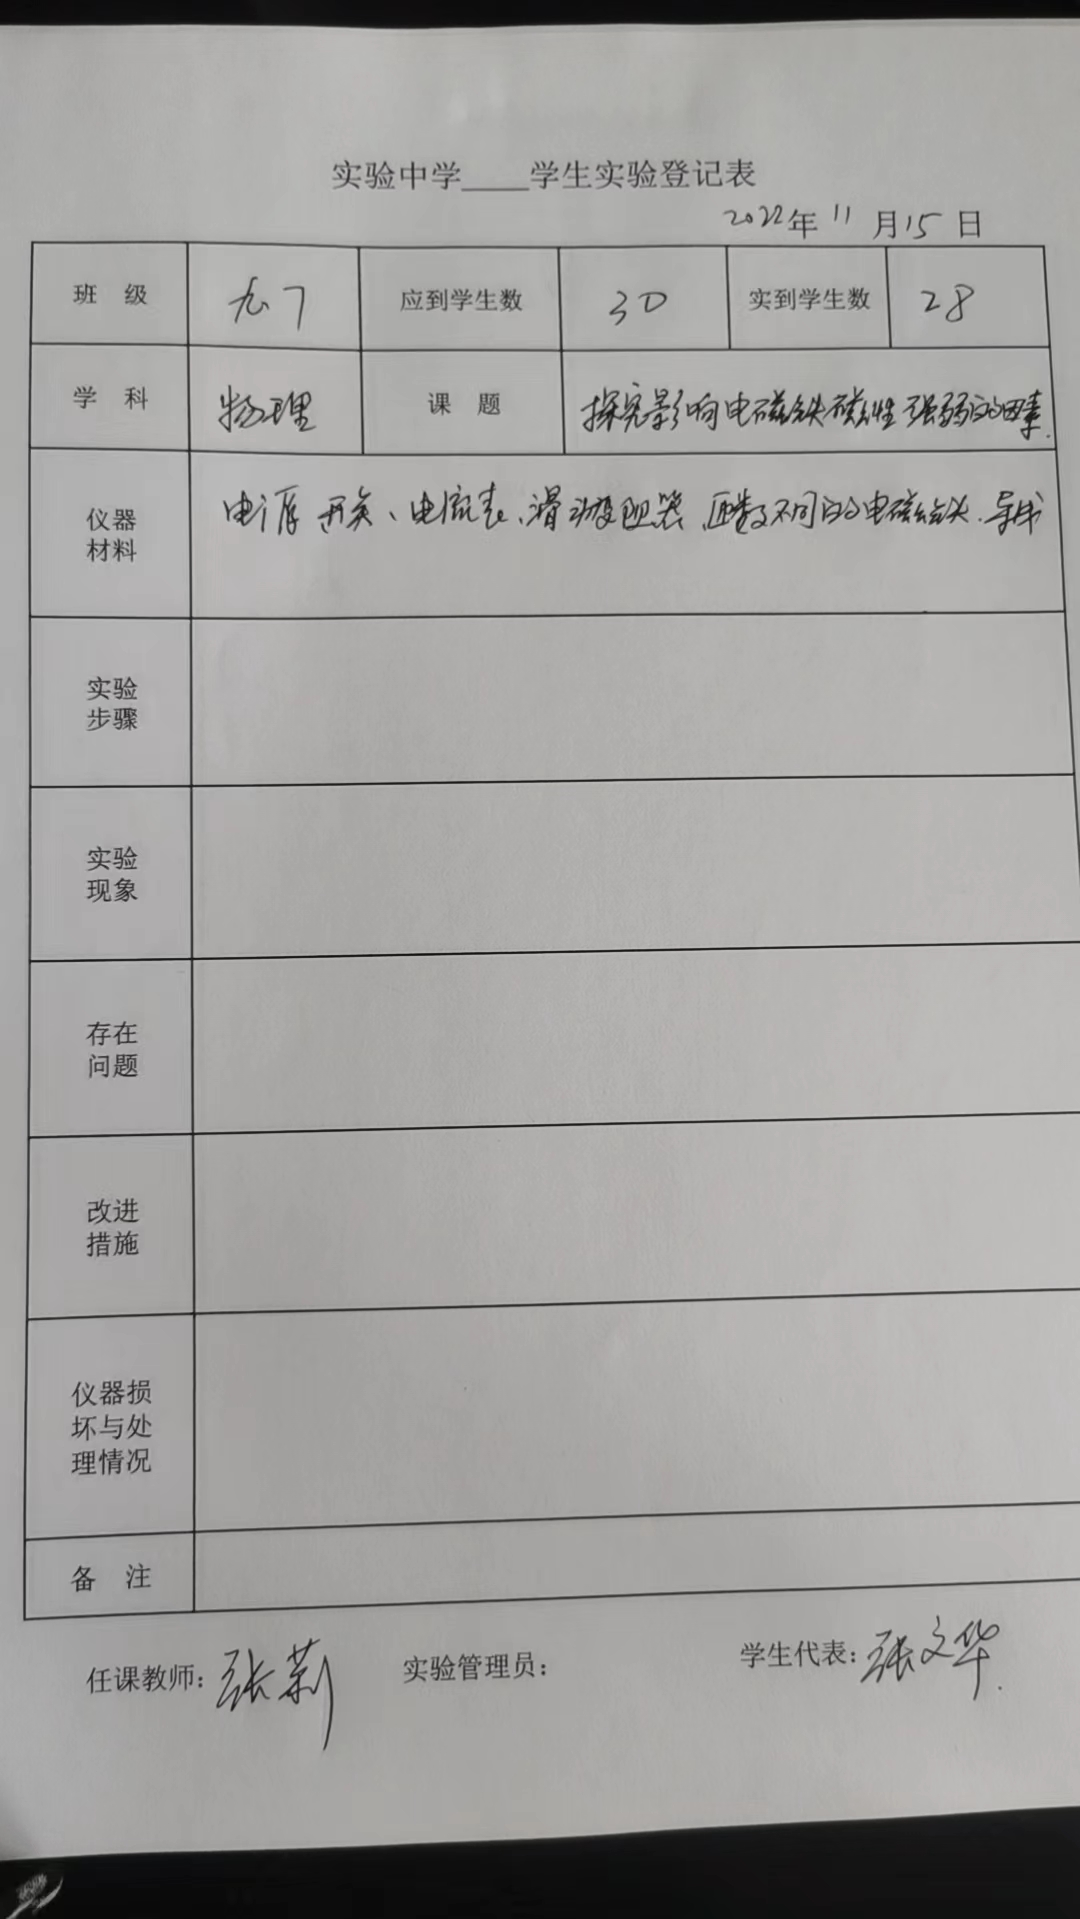 实验中学____学生实验登记表
2022年 11 月15日
班 级 九7 应到学生数 30 实到学生数 28
学 科 物理 课 题 探究影响电磁铁磁性强弱的因素.
仪器
材料
电源 开关、电流表、滑动变阻器、匝数不同的电磁铁、导线
实验
步骤
实验
现象
存在
问题
改进
措施
仪器损
坏与处
理情况
备 注
任课教师：张莉 实验管理员： 学生代表：张文华.